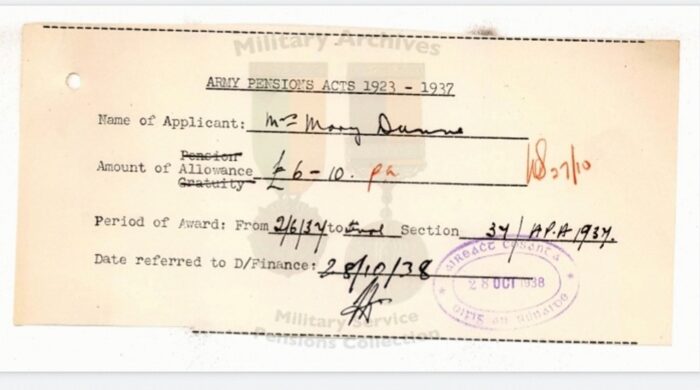 Military Archives
ARMY PENSIONS ACTS 1923 - 1937
Name of Applicant: Mrs Mary Dunne
Pension
Amount of Allowance £6-10. pa
Gratuity
27/10
Period of Award: From 2/6/37 to Section 37/ A.P.A 1937.
Date referred to D/Finance: 28/10/38
28 OCT 1938
Military Service
Pensions Collection